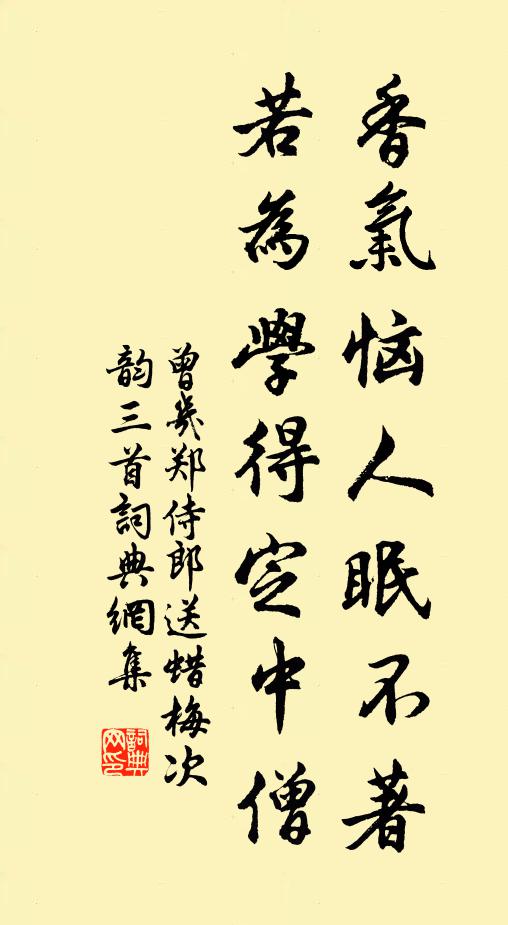 香氣恼人眠不著
若為學得定中僧
曾幾郑侍郎送蜡梅次
韵三首詞典網集
詞典
网印